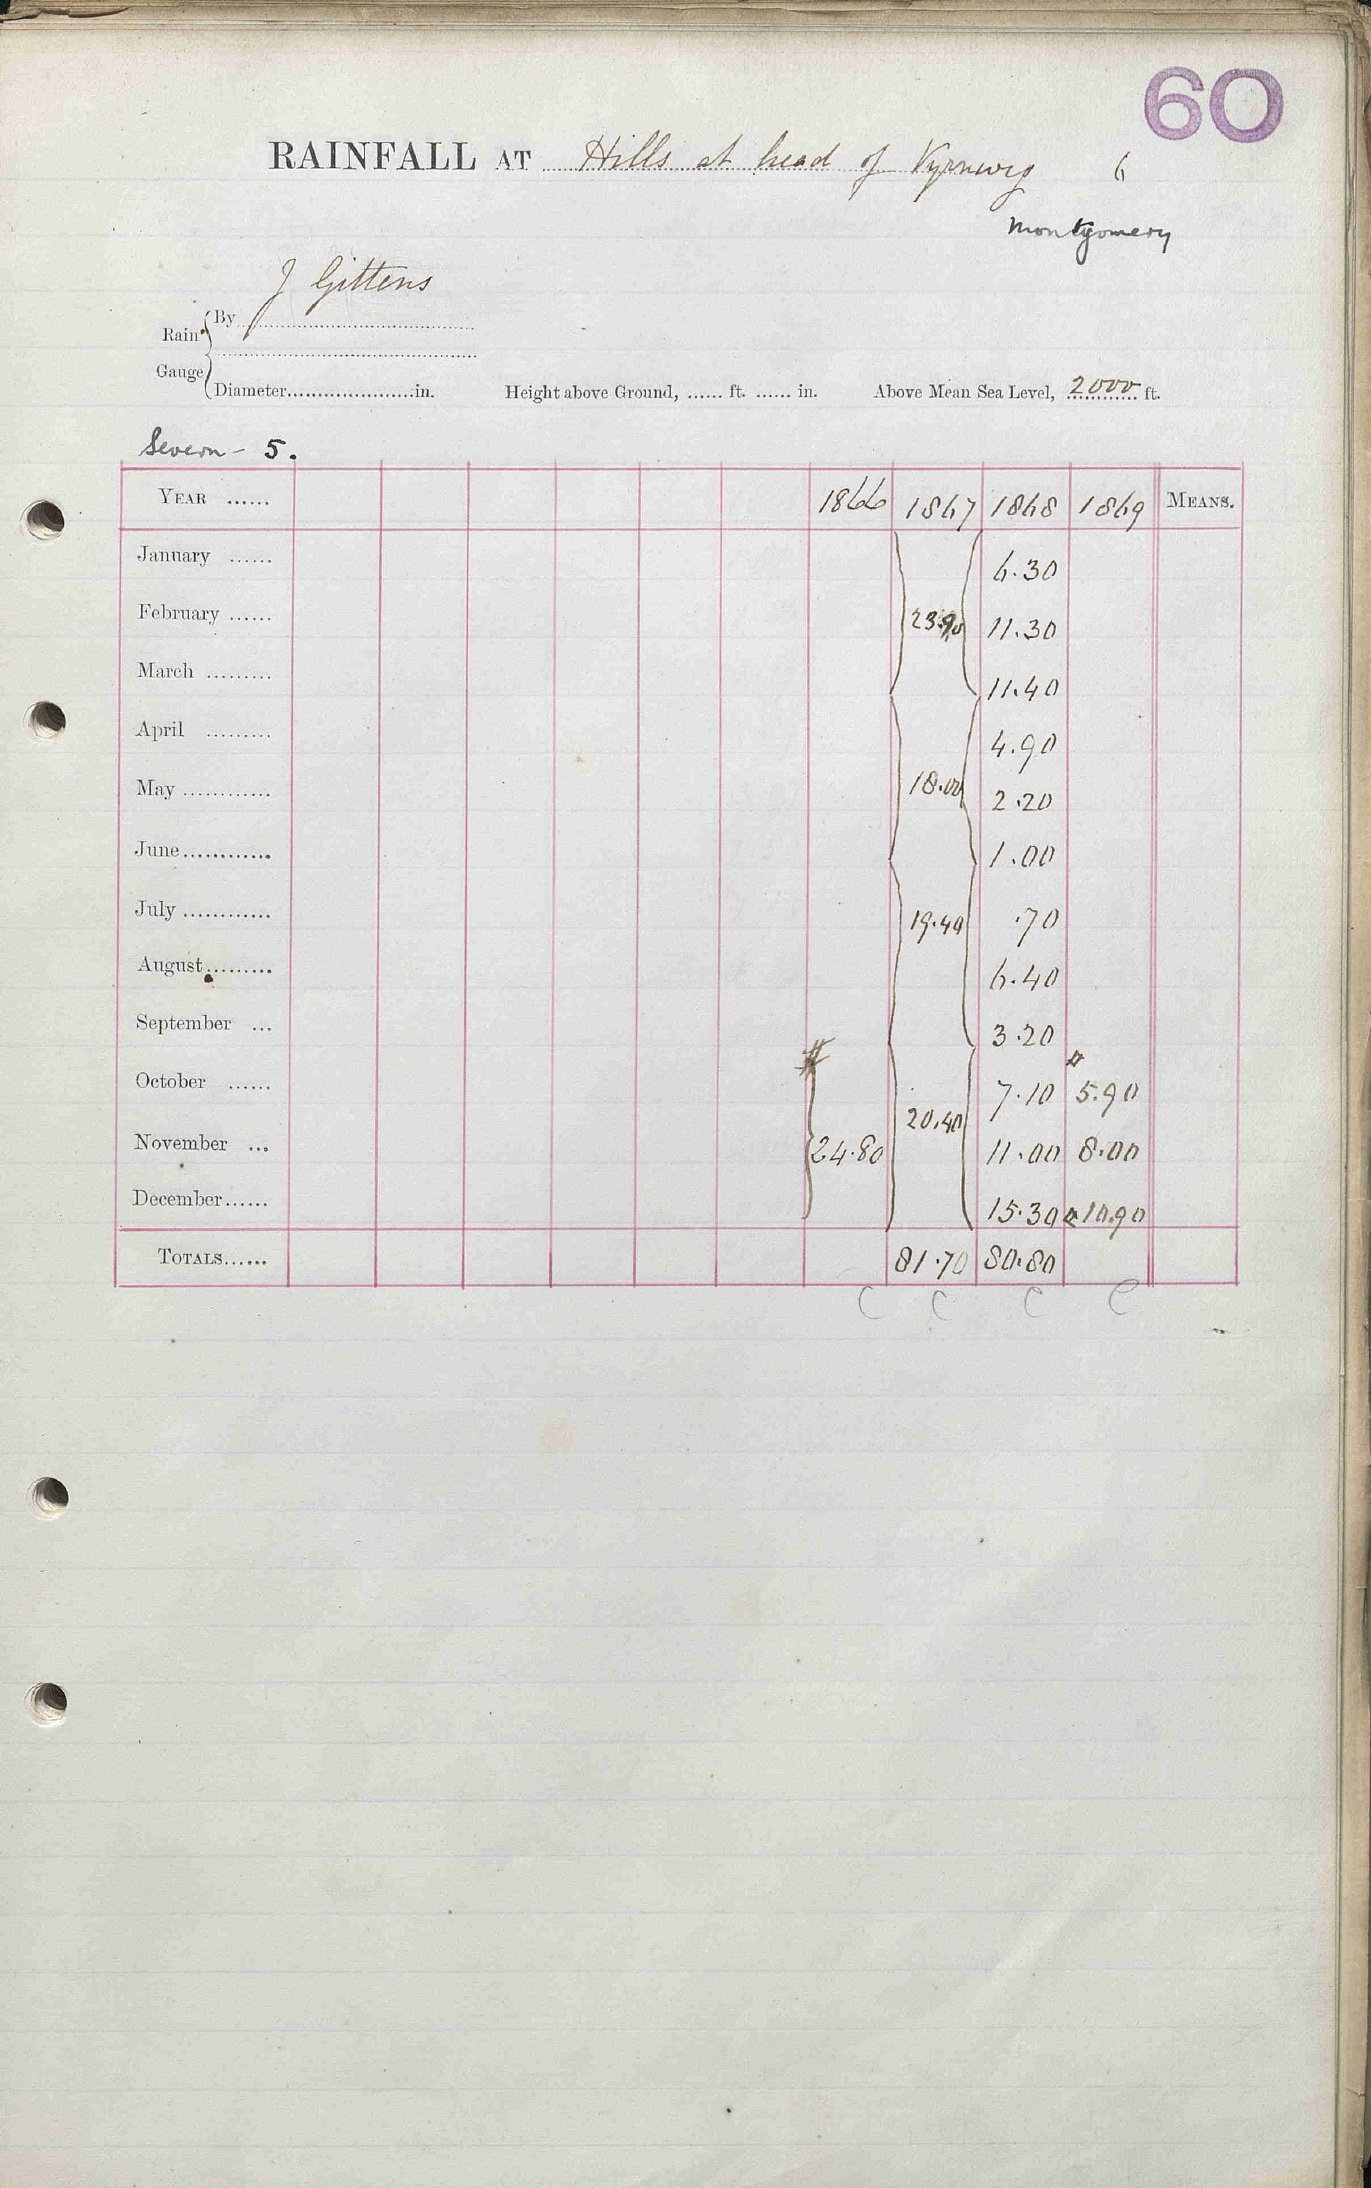 60
RAINFALL AT Hills at head of Vyrnwy 6
Montgomery
J Gittens
Rain Gauge { By ........
Diameter........in. Height above Ground, ...... ft. ...... in. Above Mean Sea Level, 2000 ft.
Severn - 5.
YEAR ...... 1866 1867 1868 1869 MEANS.
January ...... 6.30
February ...... 23.90 11.30
March ......... 11.40
April ......... 4.90
May ............ 18.00 2.20
June............ 1.00
July ............ 19.40 .70
August......... 6.40
September ... 3.20
October ...... 7.10 5.90
November ... 24.80 20.40 11.00 8.00
December...... 15.30 10.90
TOTALS...... 81.70 80.80
C C C C